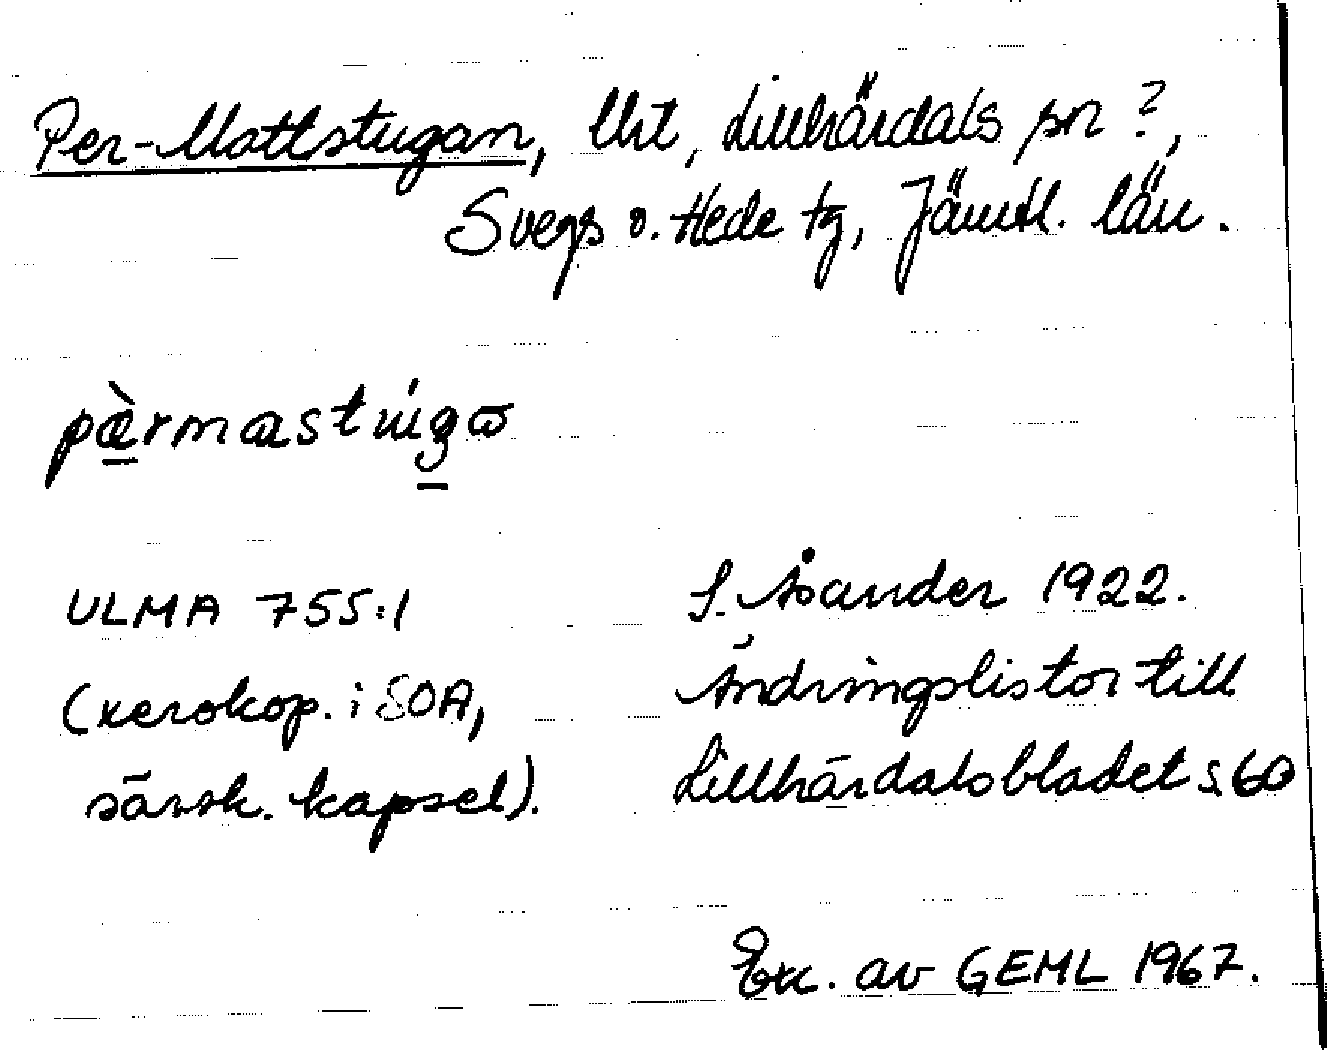 Per-Mattstugan, Urt, Lillhärdals sn ?,
Svegs o. Hede tg, Jämtl. län.
pæ̀rmastúgo
ULMA 755:1
S. Åsander 1922.
(xerokop. i SOA,
Ändringslistor till
särsk. kapsel).
Lillhärdalsbladet s. 60
Exc. av GEML 1967.